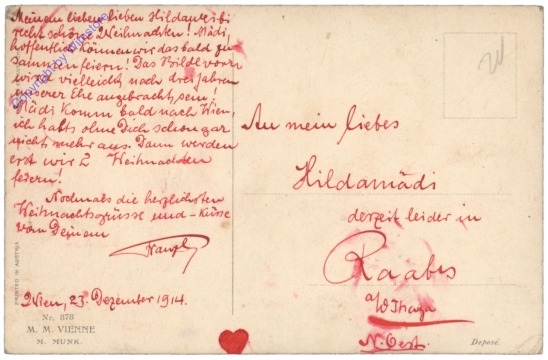 Meinem lieben, lieben Hildamäibi
recht schöne Weihnachten! Mädi,
hoffentlich können wir das bald zu
sammen feiern! Das Bildl vorn
wird vielleicht nach drei Jahren
unserer Ehe angebracht sein!
Mädi komm bald nach Wien,
ich halts ohne Dich schon gar
nicht mehr aus. Dann werden
erst wir 2 Weihnachten
feiern!
Nochmals die herzlichsten
Weihnachtsgrüsse und -Küsse
von Deinem
Franzl
Wien, 23. Dezember 1914.
An mein liebes
Hildamädi
derzeit leider in
Raabs
a/d Thaya
N. Oest.
PRINTED IN AUSTRIA
Nr. 878
M. M. VIENNE
M. MUNK.
Deposé.